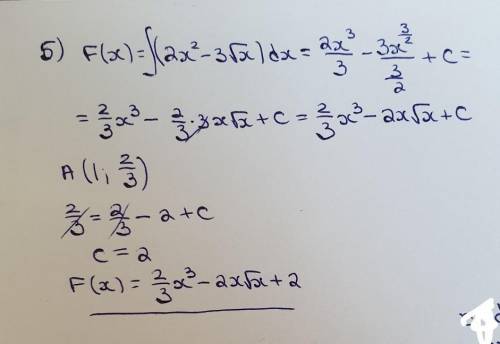 Б) F(x) = ∫(2x² - 3√x) dx = 2x³/3 - 3x^(3/2)/(3/2) + C =
= 2/3 x³ - 2/3 · 3x√x + C = 2/3 x³ - 2x√x + C
A (1; 2/3)
2/3 = 2/3 - 2 + C
C = 2
F(x) = 2/3 x³ - 2x√x + 2